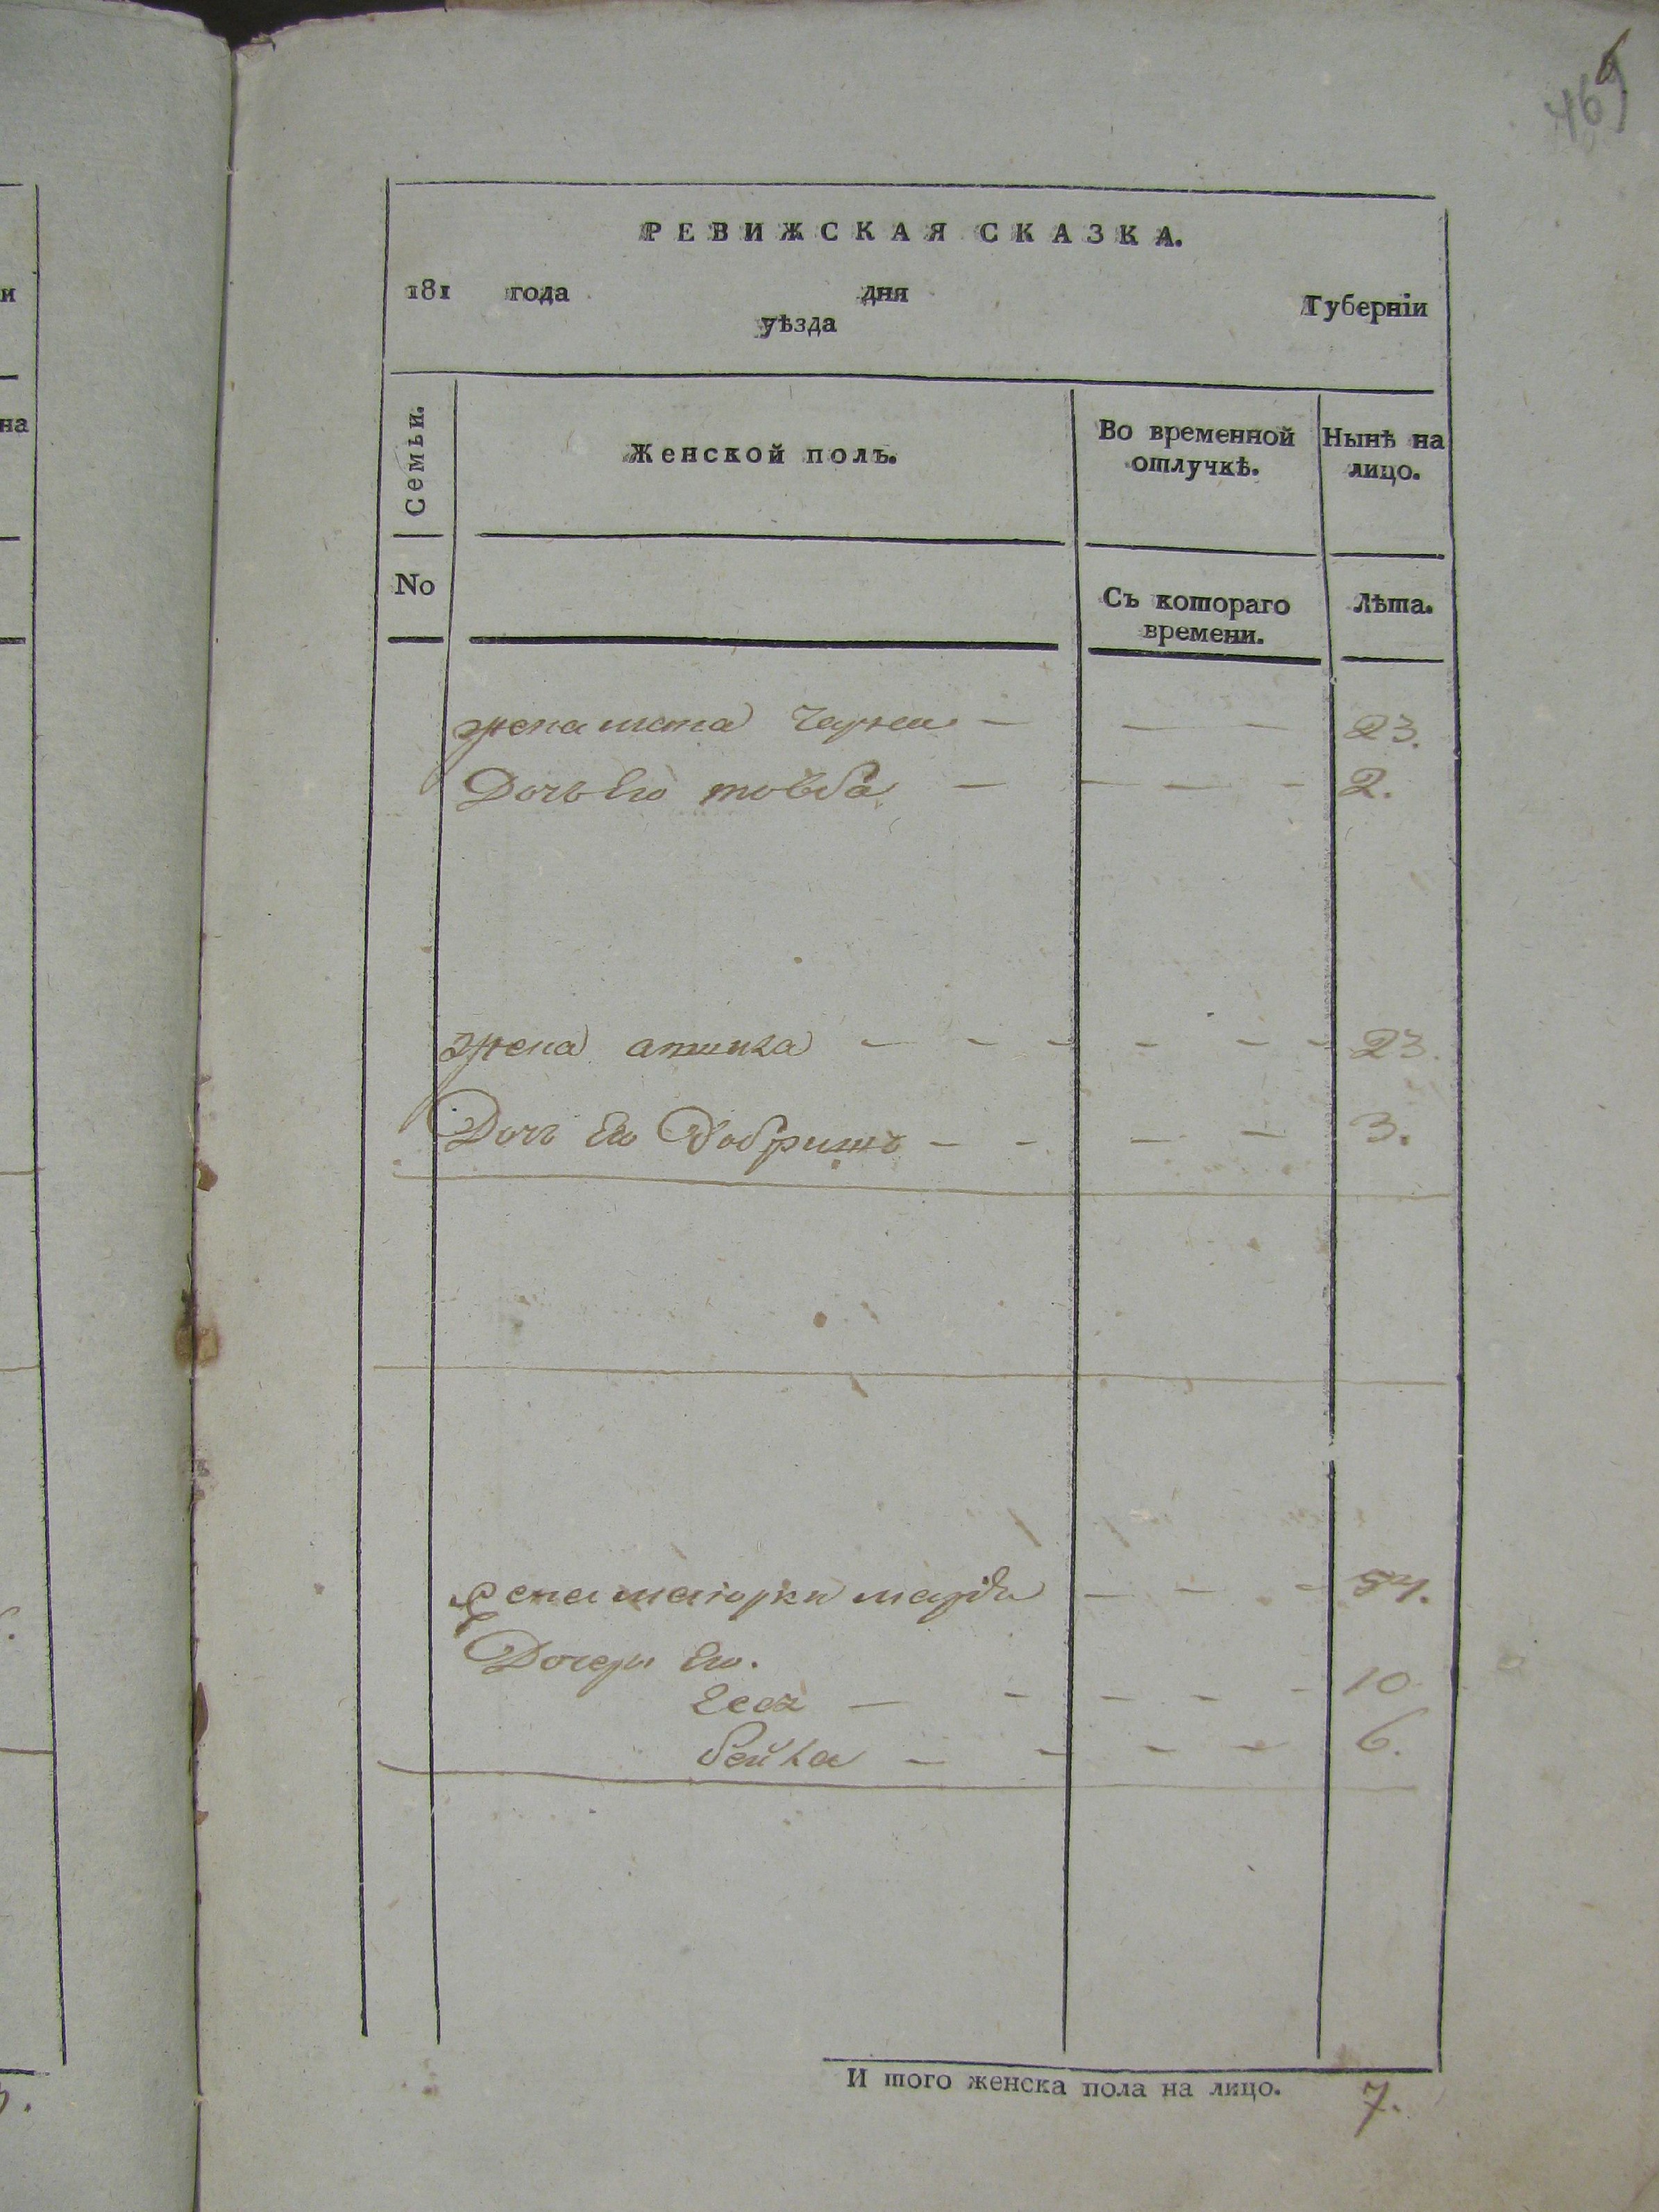 469
РЕВИЖСКАЯ СКАЗКА.
181 года дня Губерніи
уѣзда
Семьи.
Женской полъ.
Во временной отлучкѣ.
Нынѣ на лицо.
No
Съ котораго времени.
Лѣта.
жена 23.
Дочь Его товба 2.
жена 23.
Дочь Его Добришъ 3.
54.
Дочери Его.
10
бейла 6.
И того женска пола на лицо. 7.
и
на